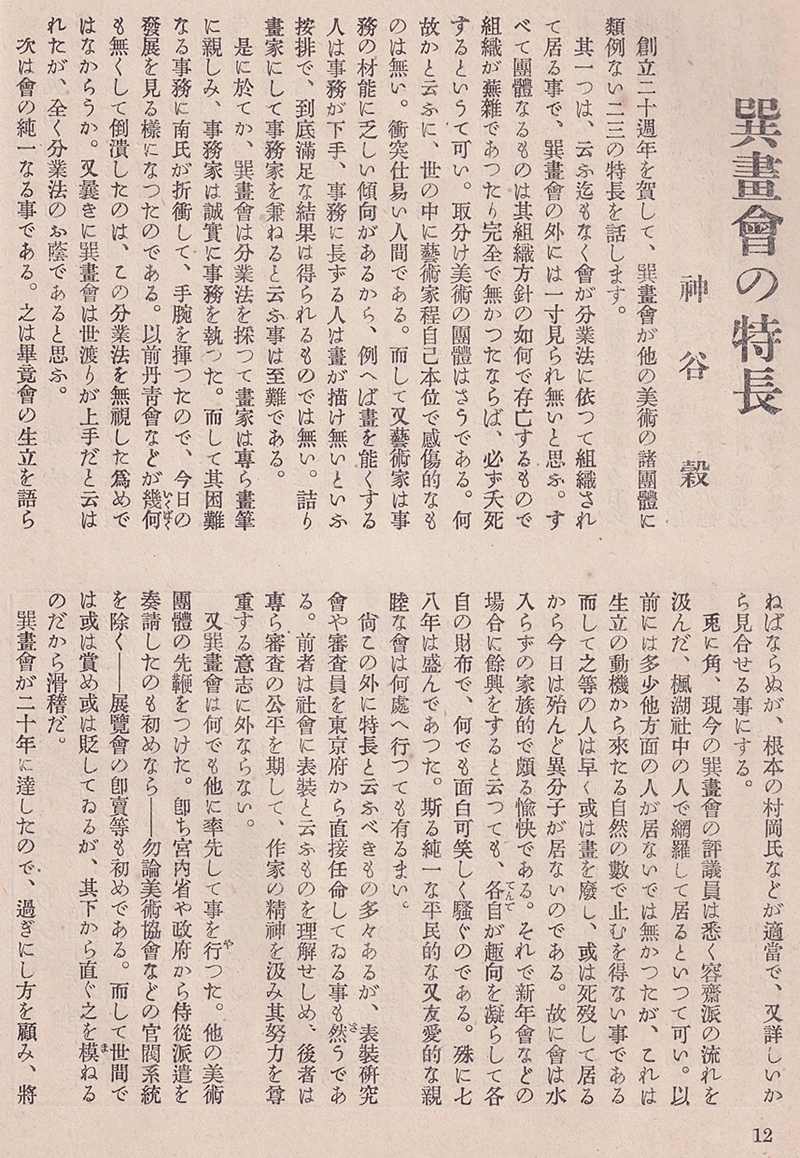 巽畫會の特長
神谷穀
創立二十週年を賀して、巽畫會が他の美術の諸團體に
類例ない二三の特長を話します。
其一つは、云ふ迄もなく會が分業法に依つて組織され
て居る事で、巽畫會の外には一寸見られ無いと思ふ。す
べて團體なるものは其組織方針の如何で存亡するもので
組織が蕪雜であつたり完全で無かつたならば、必ず夭死
するというて可い。取分け美術の團體はさうである。何
故かと云ふに、世の中に藝術家程自己本位で感傷的なも
のは無い。衝突仕易い人間である。而して又藝術家は事
務の材能に乏しい傾向があるから、例へば畫を能くする
人は事務が下手、事務に長ずる人は畫が描け無いといふ
按排で、到底滿足な結果は得られるものでは無い。詰り
畫家にして事務家を兼ねると云ふ事は至難である。
是に於てか、巽畫會は分業法を採つて畫家は專ら畫筆
に親しみ、事務家は誠實に事務を執つた。而して其困難
なる事務に南氏が折衝して、手腕を揮つたので、今日の
發展を見る樣になつたのである。以前丹青會などが幾何いくばく
も無くして倒潰したのは、この分業法を無視した爲めで
はなからうか。又曩きに巽畫會は世渡りが上手だと云は
れたが、全く分業法のお蔭であると思ふ。
次は會の純一なる事である。之は畢竟會の生立を語ら
ねばならぬが、根本の村岡氏などが適當で、又詳しいか
ら見合せる事にする。
兎に角、現今の巽畫會の評議員は悉く容齋派の流れを
汲んだ、楓湖社中の人で網羅して居るといつて可い。以
前には多少他方面の人が居ないでは無かつたが、これは
生立の動機から來たる自然の數で止むを得ない事である
而して之等の人は早く或は畫を廢し、或は死歿して居る
から今日は殆んど異分子が居ないのである。故に會は水
入らずの家族的で頗る愉快である。それで新年會などの
場合に餘興をすると云つても、各自てんでが趣向を凝らして各
自の財布で、何でも面白可笑しく騷ぐのである。殊に七
八年は盛んであつた。斯る純一な平民的な又友愛的な親
睦な會は何處へ行つても有るまい。
尙この外に特長と云ふべきもの多々あるが、表裝硏究
會や審査員を東京府から直接任命してゐる事も然さうであ
る。前者は社會に表裝と云ふものを理解せしめ、後者は
專ら審査の公平を期して、作家の精神を汲み其努力を尊
重する意志に外ならない。
又巽畫會は何でも他に率先して事を行やつた。他の美術
團體の先鞭をつけた。卽ち宮內省や政府から侍從派遣を
奏請したのも初めなら――勿論美術協會などの官閥系統
を除く――展覽會の卽賣等も初めである。而して世間で
は或は賞め或は貶してゐるが、其下から直ぐ之を模まねる
のだから滑稽だ。
巽畫會が二十年に達したので、過ぎにし方を顧み、將
12